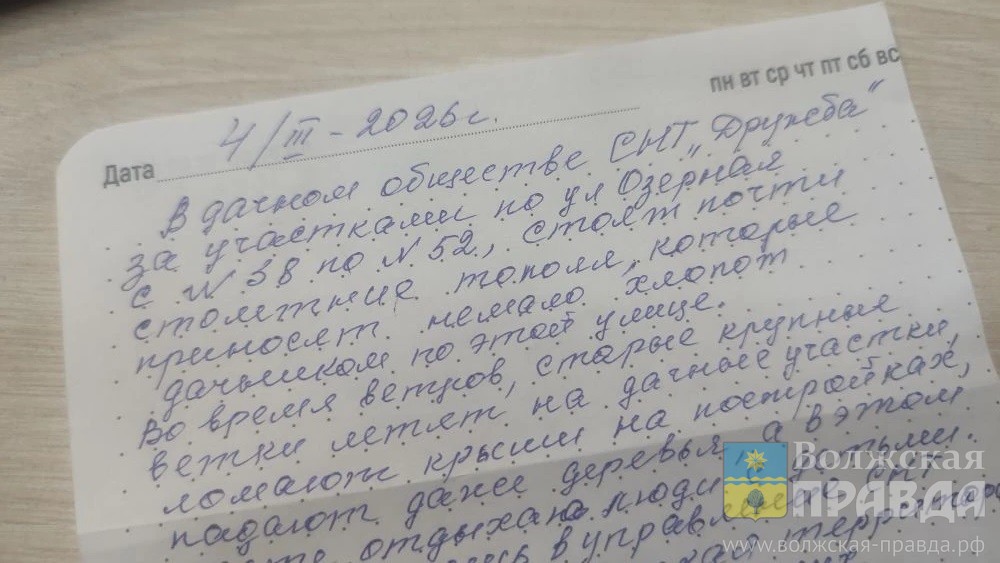 пн вт ср чт пт сб вс
Дата 4/III-2026г.
В дачном обществе СНТ „Дружба"
за участками по ул Озерная
с N 38 по N 52, стоят почти
столетние тополя, которые
приносят немало хлопот
дачникам по этой улице.
Во время ветров, старые крупные
ветки летят на дачные участки,
ломают крыши на постройках,
падают даже деревья а в этом
отдыхают люди с детьми.
в управление
Волжская
ПРАВДА
www.волжская-правда.рф